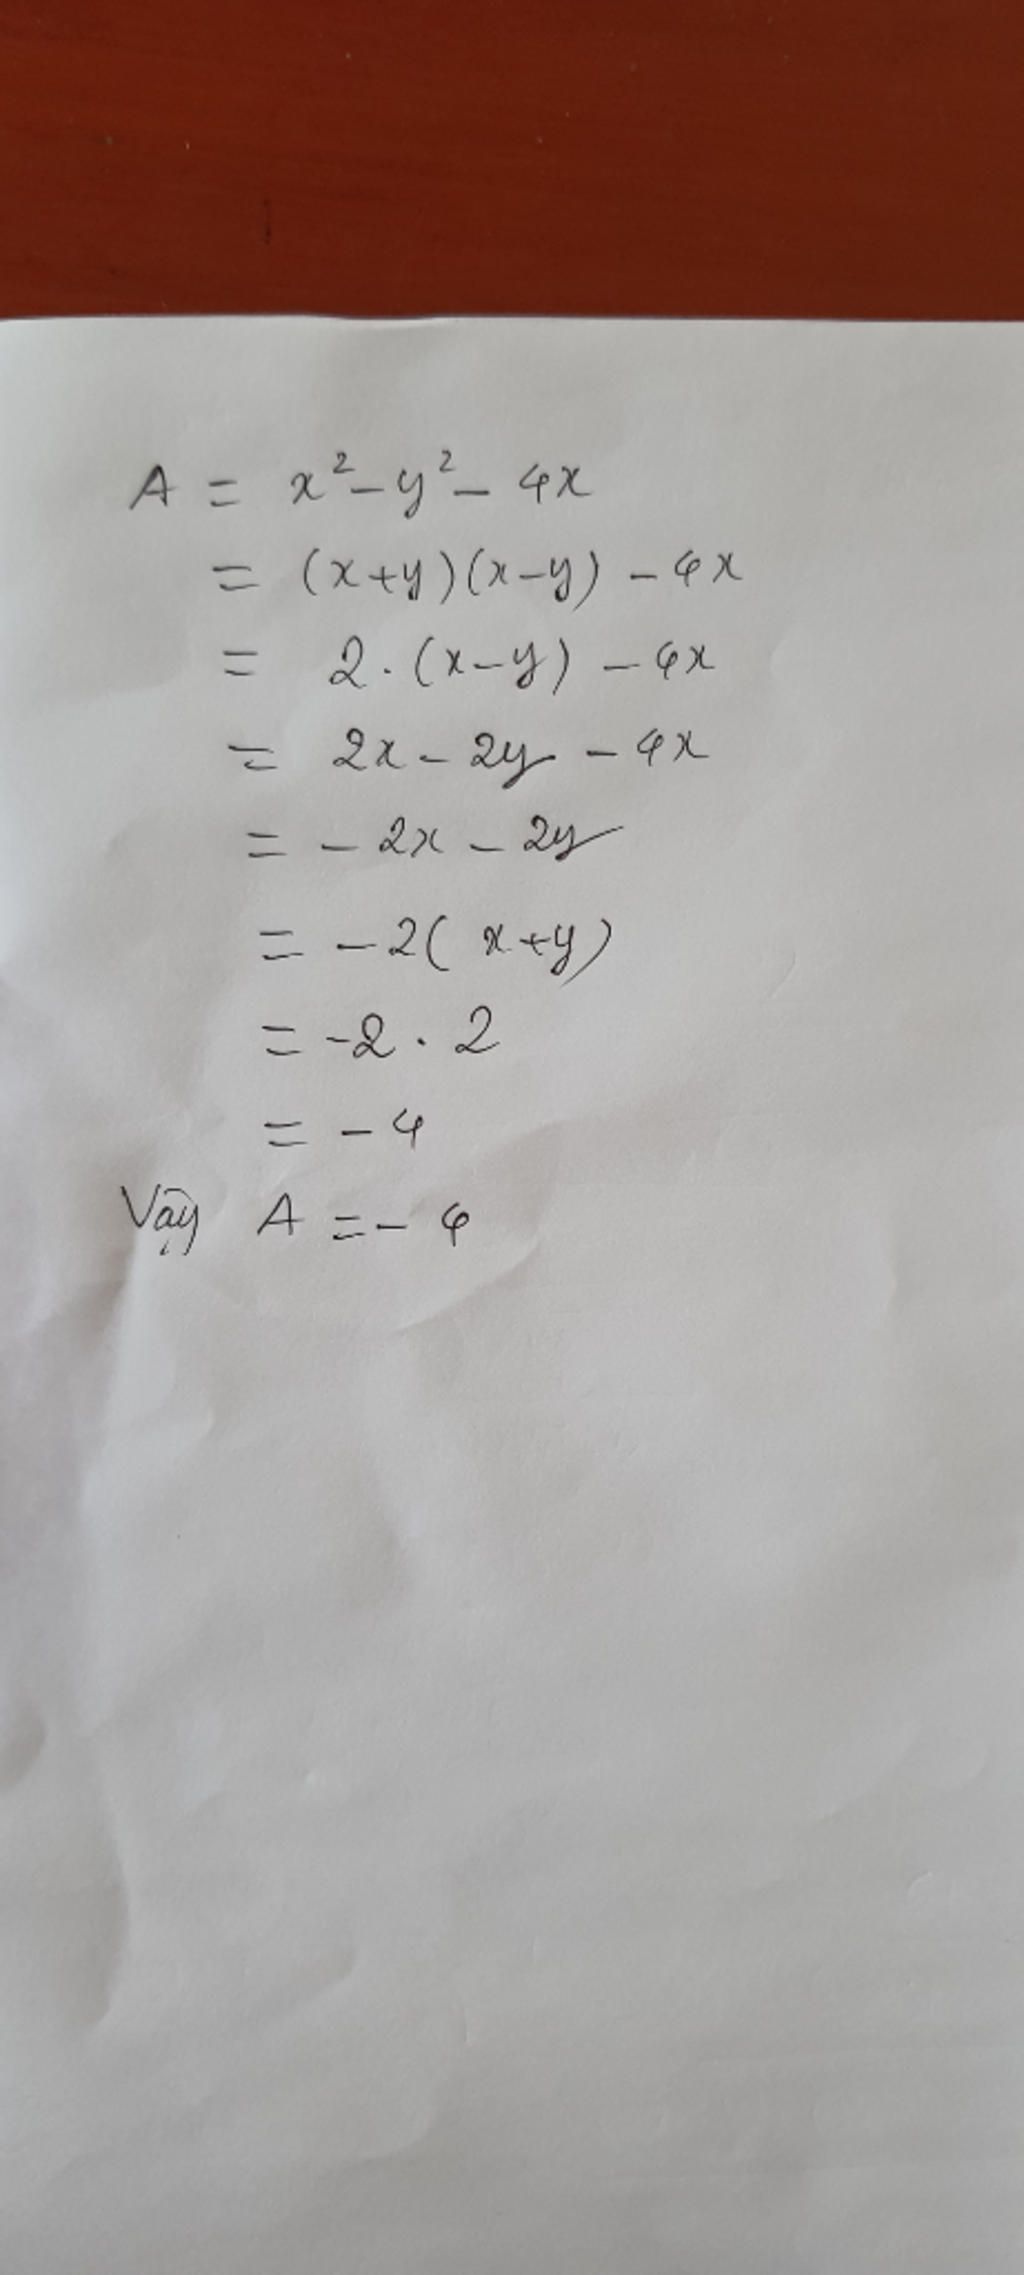 A = x² - y² - 4x
= (x+y)(x-y) - 4x
= 2.(x-y) - 4x
= 2x - 2y - 4x
= - 2x - 2y
= - 2( x+y)
= -2 . 2
= - 4
Vậy A = - 4